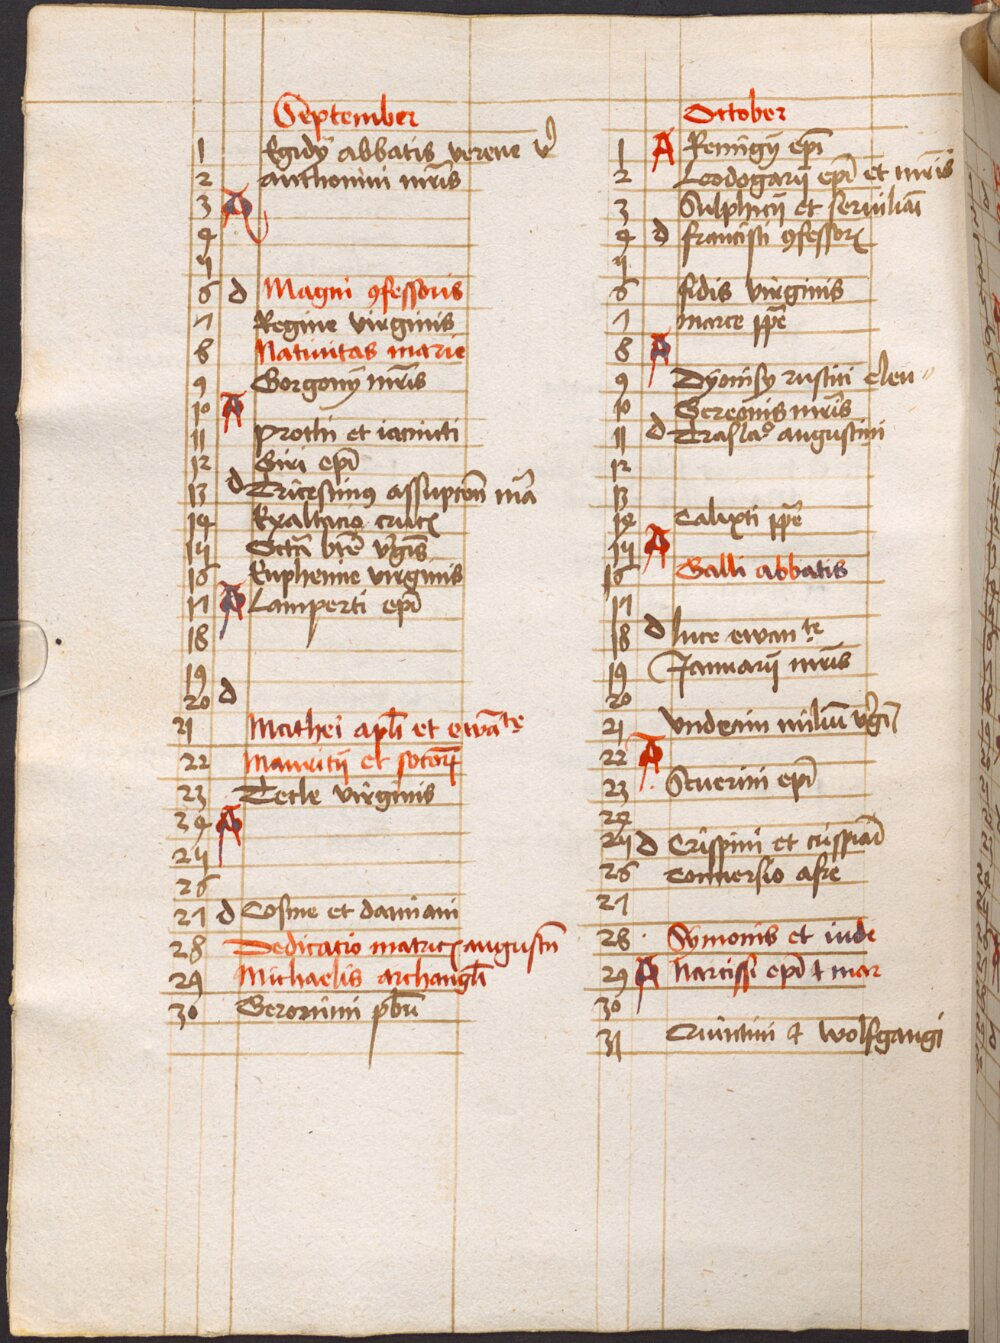 September
1 Egidy abbatis verene v
2 anthonini mris
3 A
4
5
6 d Magni 9fessoris
7 Regine virginis
8 Nativitas marie
9 Gorgonij mris
10 A
11 Prothi et iacincti
12 Siri epi
13 d Tricesimus assuptiois mie
14 Exaltacio crucis
15 Octa bte vgis
16 Euphemie virginis
17 A Lamperti epi
18
19
20 d
21 Mathei apli et ewāte
22 Mauritij et socorum
23 Tecle virginis
24 A
25
26
27 d Cosme et damiani
28 Dedicatio matricis augustn
29 Michaelis archangli
30 Geronimi pbri
October
1 A Remigij epi
2 Leodogarij epi et mris
3 Sulphicij et serviliai
4 d francisci 9fessoris
5
6 fidis virginis
7 marce ppe
8 A
9 Dyonisy rustici eleu
10 Gereonis mris
11 d Trasla9 augustini
12
13
14 Calixti ppe
15 A
16 Galli abbatis
17
18 d luce ewan te
19 Januarij mris
20
21 Undecim miliu vgi
22 A
23 Severini epi
24
25 d Crispini et crispiai
26 conversio afre
27
28 Symonis et iude
29 A Narcissi epi & mar
30
31 Quintini & wolfgangi